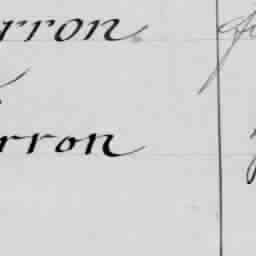 rron
rron